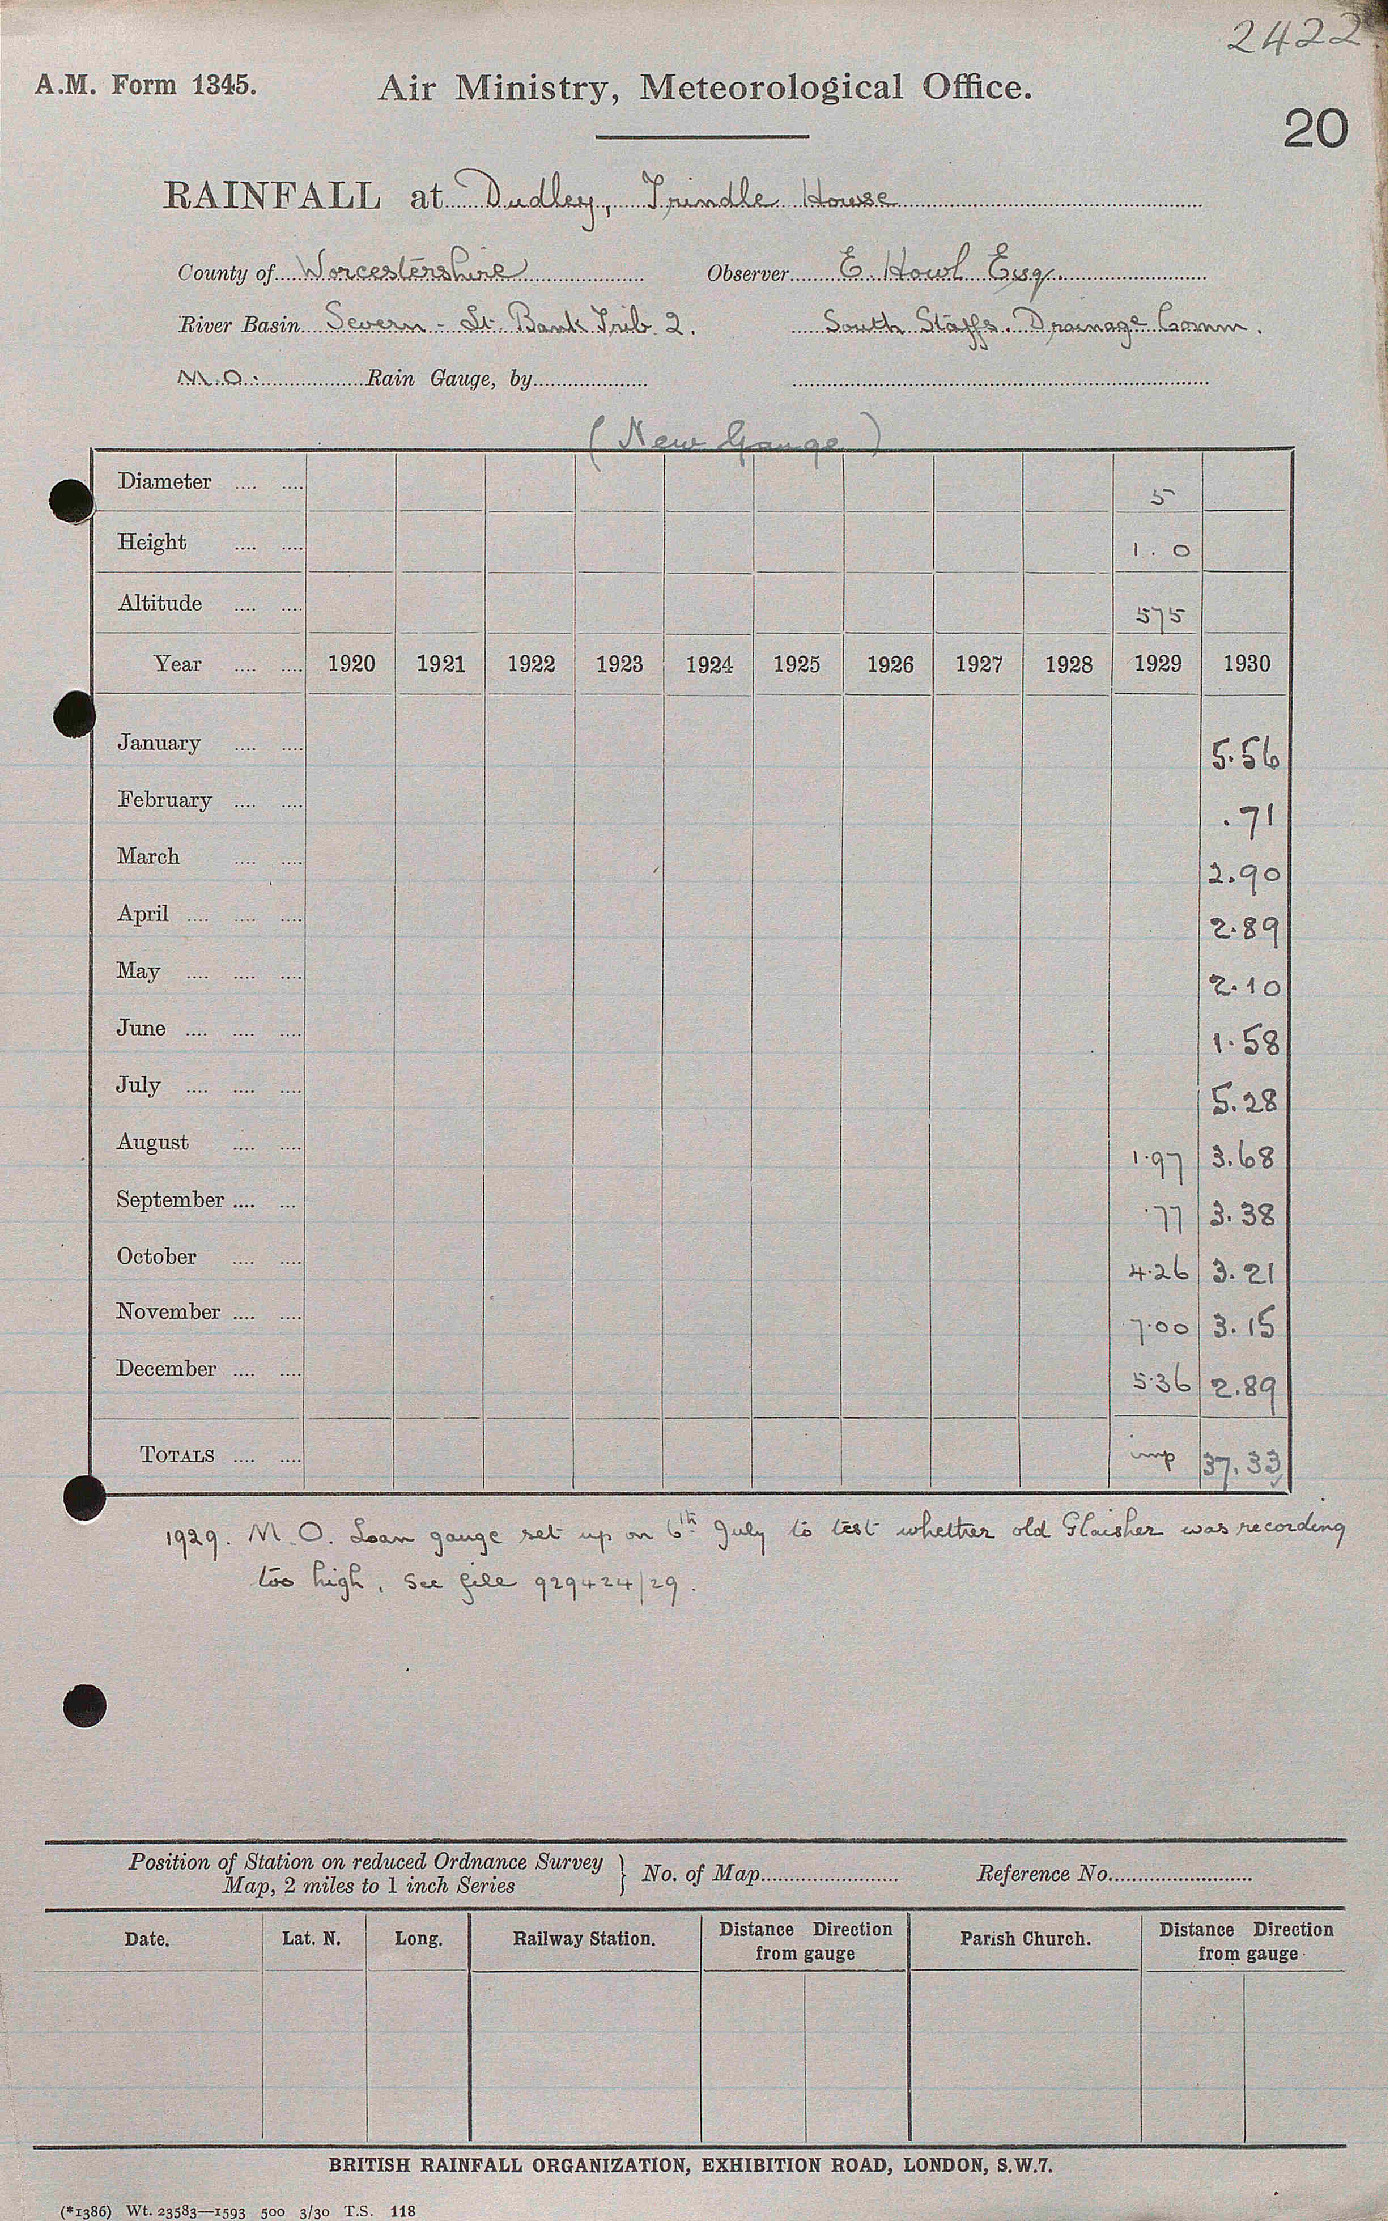 2422
A.M. Form 1345. Air Ministry, Meteorological Office.
20
RAINFALL at Dudley, Trindle House
County of Worcestershire Observer E. Howl Esq
River Basin Severn - Lt. Bank Trib. 2. South Staffs. Drainage Comm.
M.O. Rain Gauge, by
(New Gauge)
Diameter 5
Height 1.0
Altitude 575
Year 1920 1921 1922 1923 1924 1925 1926 1927 1928 1929 1930
January 5.56
February .71
March 2.90
April 2.89
May 2.10
June 1.58
July 5.28
August 1.97 3.68
September .77 3.38
October 4.26 3.21
November 7.00 3.15
December 5.36 2.89
TOTALS imp 37.33
1929. M.O. Loan gauge set up on 6th July to test whether old Glaisher was recording
too high. See file 929424/29.
Position of Station on reduced Ordnance Survey
Map, 2 miles to 1 inch Series } No. of Map Reference No.
Date. Lat. N. Long. Railway Station. Distance Direction from gauge Parish Church. Distance Direction from gauge
BRITISH RAINFALL ORGANIZATION, EXHIBITION ROAD, LONDON, S.W.7.
(*1386) Wt. 23583—1593 500 3/30 T.S. 118